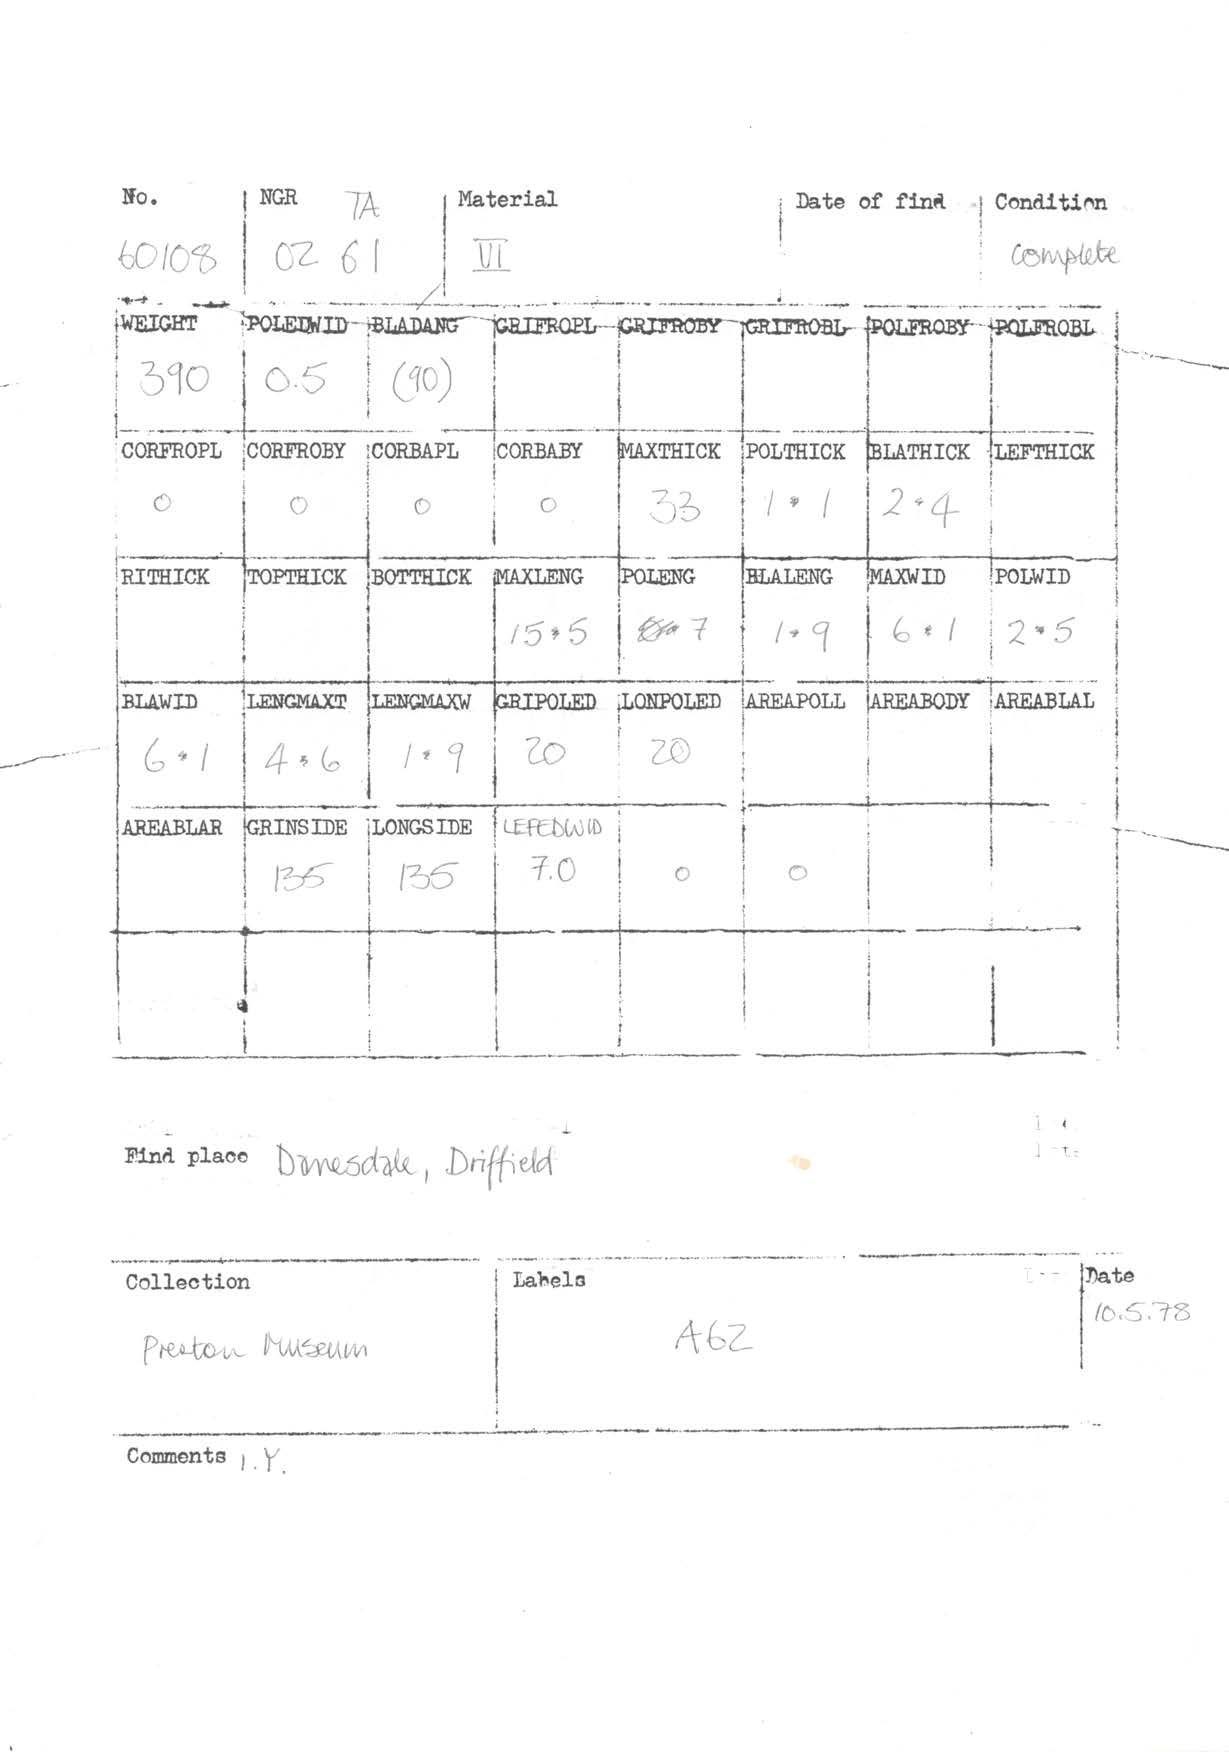 No. NGR TA Material Date of find Condition
60108 02 61 VI complete
WEIGHT POLEDWID BLADANG GRIFROPL GRIFROBY GRIFROBL POLFROBY POLFROBL
390 0.5 (90)
CORFROPL CORFROBY CORBAPL CORBABY MAXTHICK POLTHICK BLATHICK LEFTHICK
0 0 0 0 33 1.1 2.4
RITHICK TOPTHICK BOTTHICK MAXLENG POLENG BLALENG MAXWID POLWID
15.5 7 1.9 6.1 2.5
BLAWID LENGMAXT LENGMAXW GRIPOLED LONPOLED AREAPOLL AREABODY AREABLAL
6.1 4.6 1.9 20 20
AREABLAR GRINSIDE LONGSIDE LEFEDWID
135 135 7.0 0 0
Find place Danesdale, Driffield
Collection Labels Date
Preston Museum A62 10.5.78
Comments I.Y.